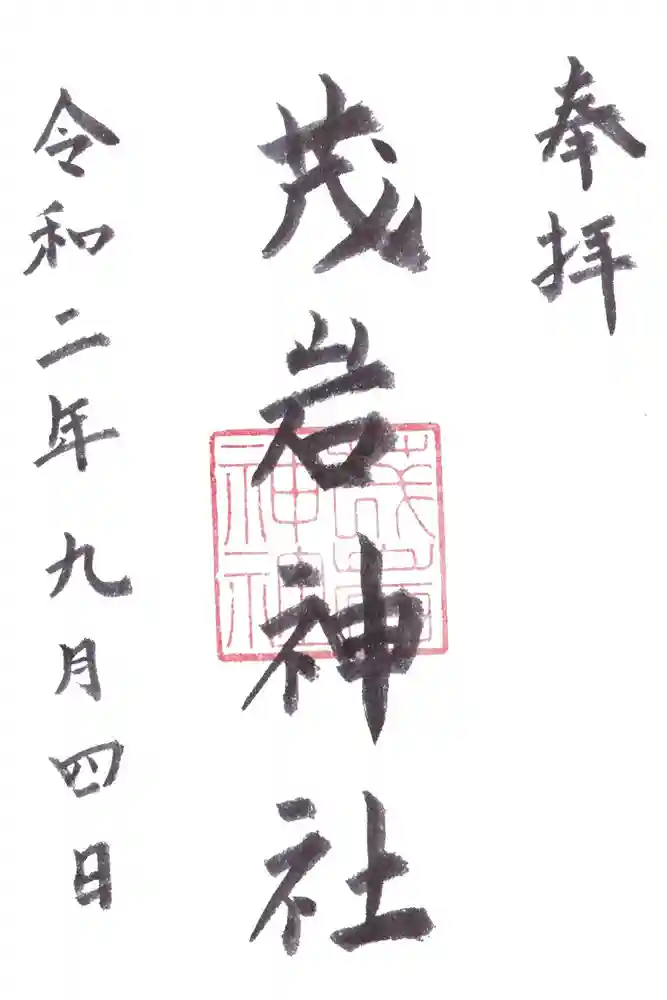 奉拝
茂岩神社
茂岩神社
令和二年九月四日